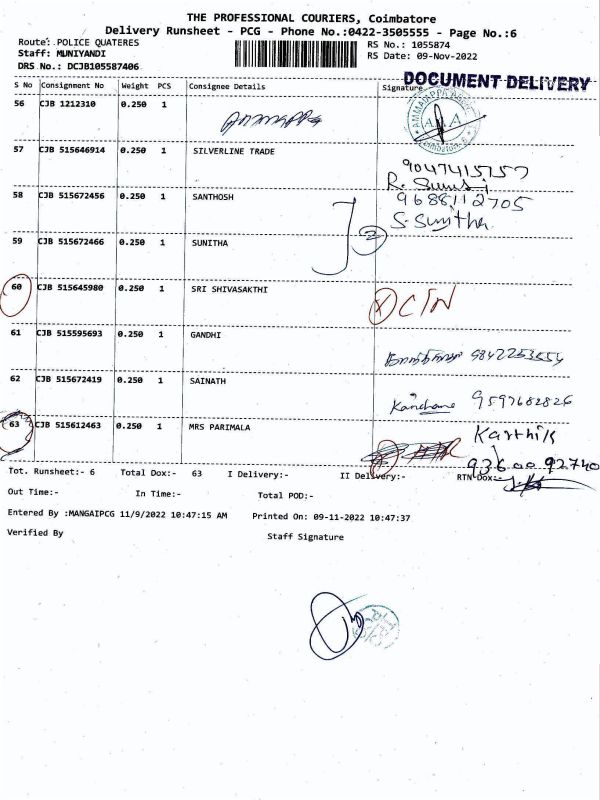 THE PROFESSIONAL COURIERS, Coimbatore
Delivery Runsheet - PCG - Phone No.:0422-3505555 - Page No.:6
Route: POLICE QUATERES RS No.: 1055874
Staff: MUNIYANDI RS Date: 09-Nov-2022
DRS No.: DCJB105587406
DOCUMENT DELIVERY
S No Consignment No Weight PCS Consignee Details Signature
56 CJB 1212310 0.250 1
57 CJB 515646914 0.250 1 SILVERLINE TRADE
9047415757
58 CJB 515672456 0.250 1 SANTHOSH 9688112705
S. Sunitha
59 CJB 515672466 0.250 1 SUNITHA
60 CJB 515645980 0.250 1 SRI SHIVASAKTHI
61 CJB 515595693 0.250 1 GANDHI
62 CJB 515672419 0.250 1 SAINATH
Kanchana 9597682826
63 CJB 515612463 0.250 1 MRS PARIMALA Karthik
93600 92740
Tot. Runsheet:- 6 Total Dox:- 63 I Delivery:- II Delivery:- RTN Dox:-
Out Time:- In Time:- Total POD:-
Entered By :MANGAIPCG 11/9/2022 10:47:15 AM Printed On: 09-11-2022 10:47:37
Verified By Staff Signature